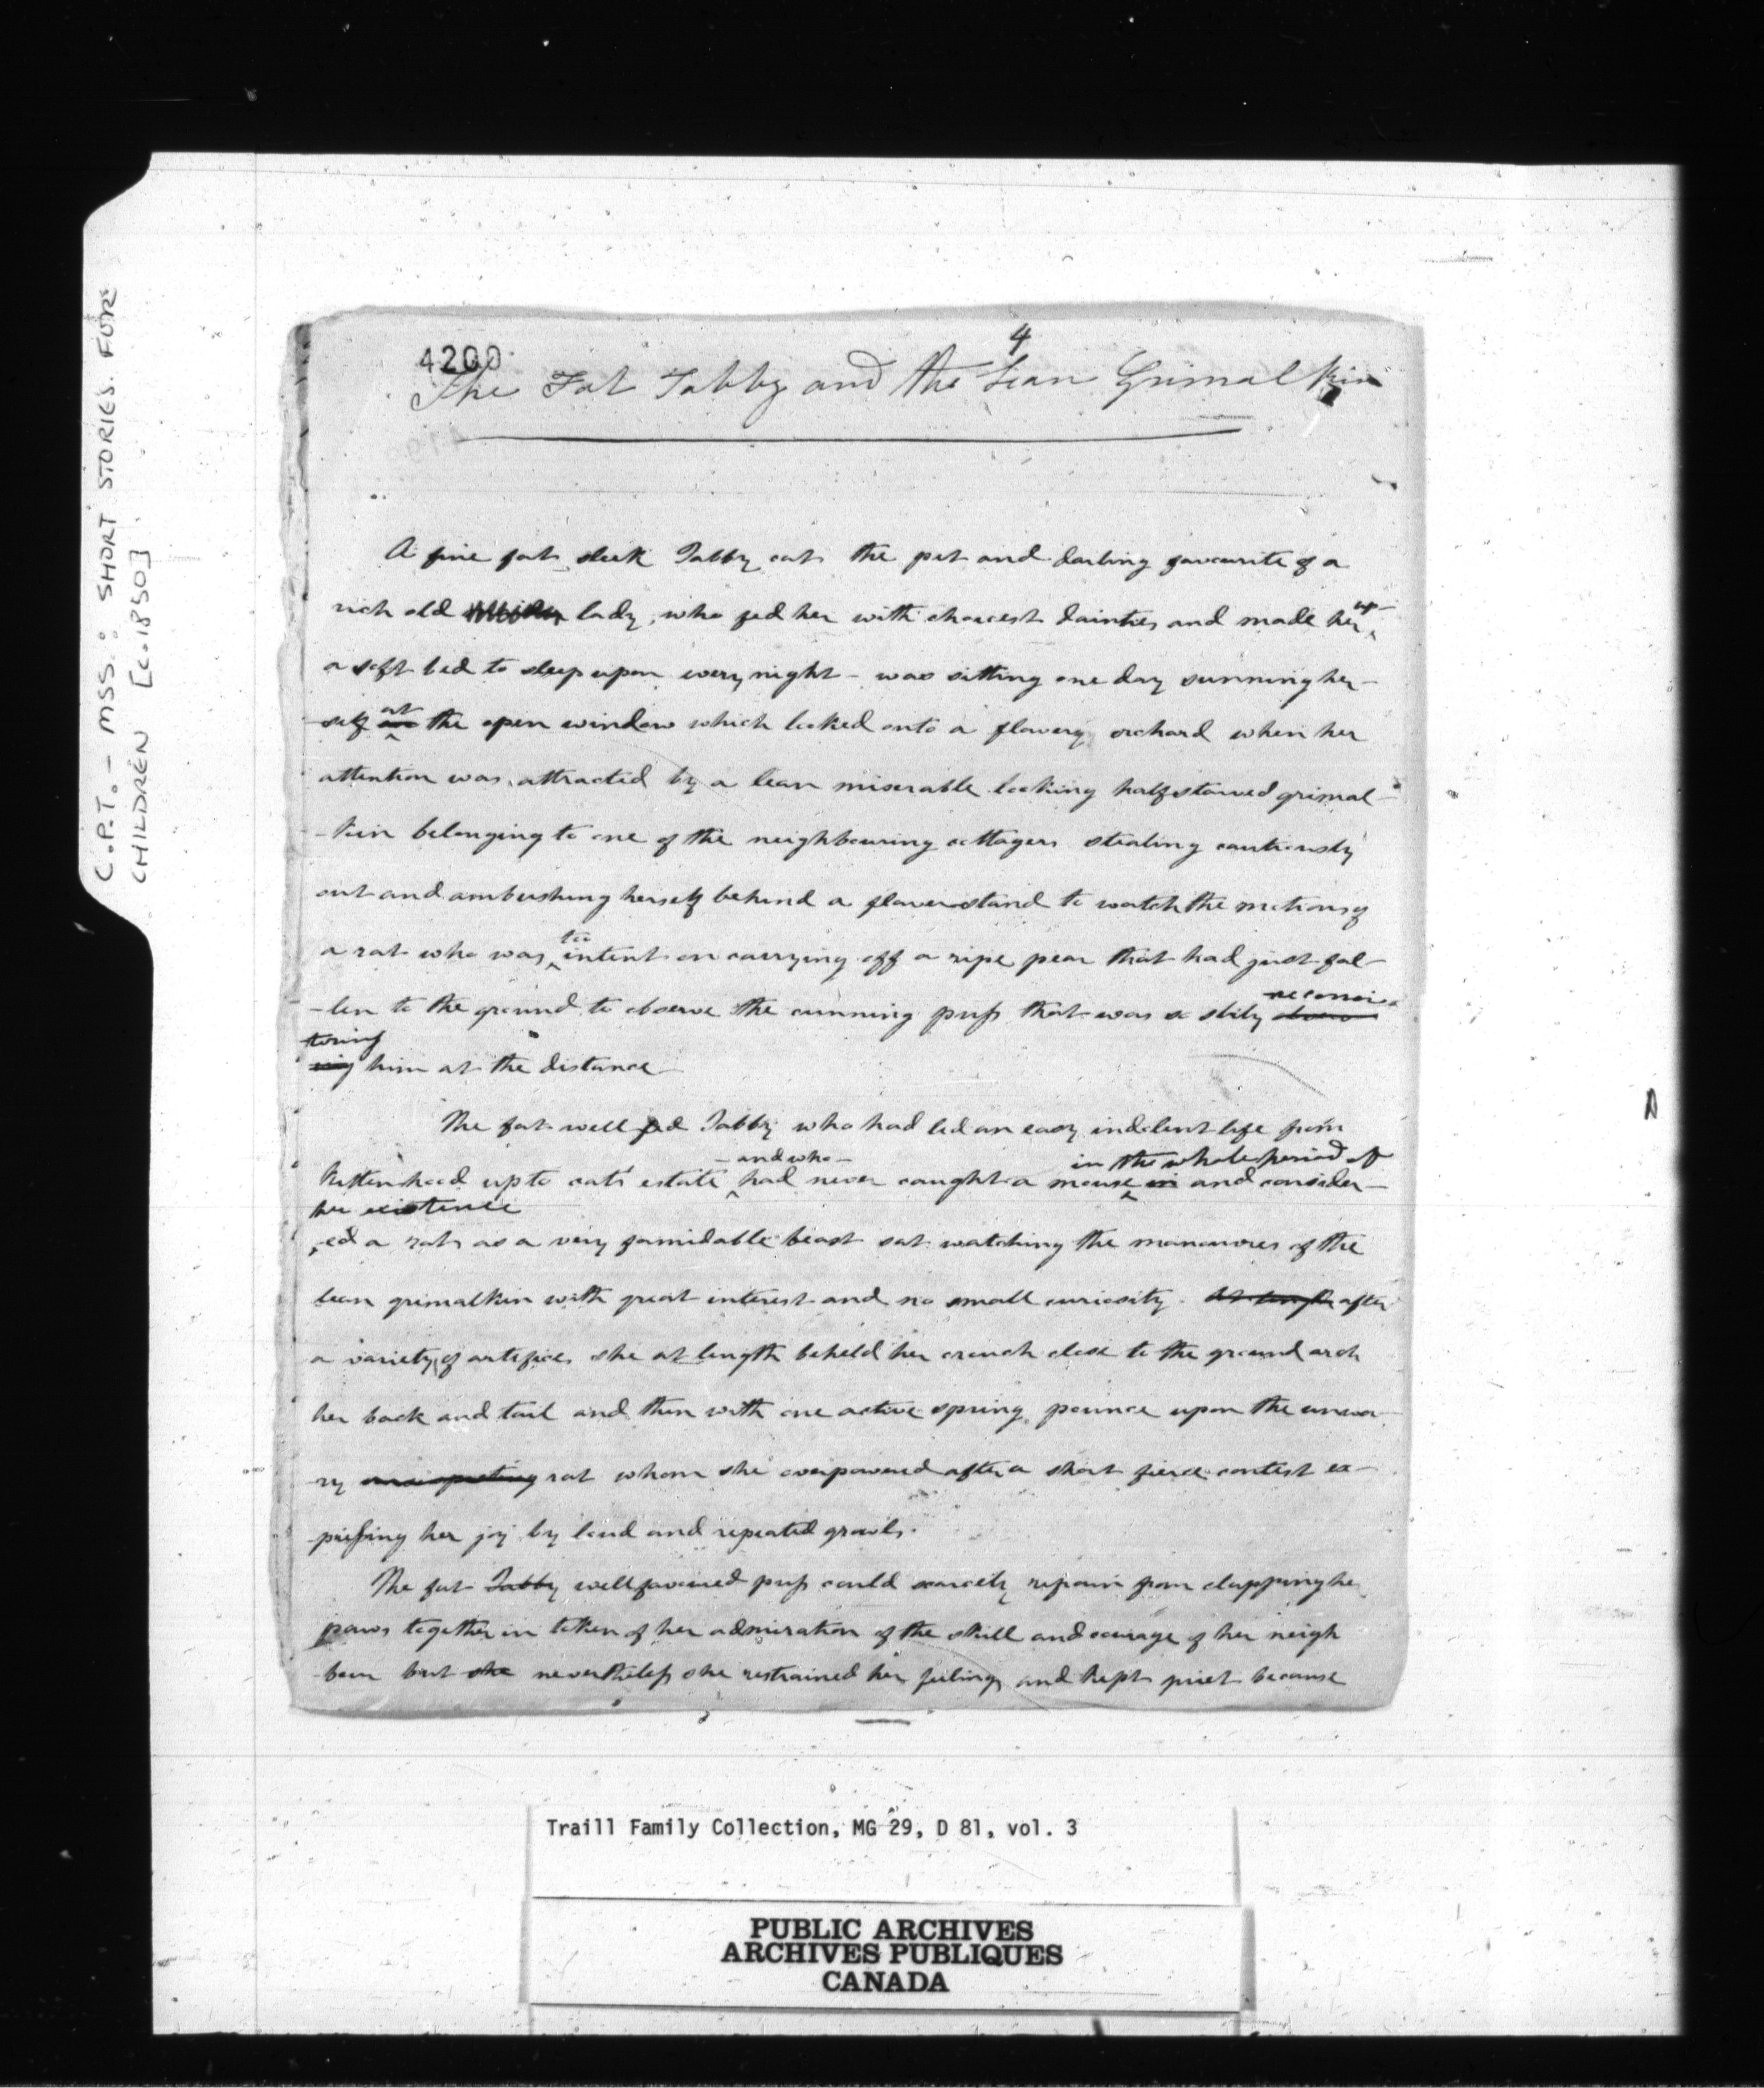 C.P.T. - MSS.: SHORT STORIES FOR
CHILDREN [c.1850]
4
4200
The Fat Tabby and the Lean Grimalkin
A fine fat sleek Tabby cat the pet and darling favourite of a
rich old lady, who fed her with choicest dainties and made her up
a soft bed to sleep upon every night - was sitting one day sunning her-
self at the open window which looked onto a flowery orchard when her
attention was attracted by a lean miserable looking half starved grimal-
-kin belonging to one of the neighbouring cottagers stealing cautiously
out and ambushing herself behind a flower stand to watch the motions of
a rat who was too intent on carrying off a ripe pear that had just fal-
-len to the ground to observe the cunning puss that was so slily reconnoi-
toring
him at the distance
The fat well fed Tabby who had led an easy indolent life from
- and who - in the whole period of
kittenhood up to cats estate had never caught a mouse in and consider-
her existence
-ed a rat as a very formidable beast sat watching the manoeuvres of the
lean grimalkin with great interest and no small curiosity. At length after
a variety of artifices she at length beheld her crouch close to the ground arch
her back and tail and then with one active spring pounce upon the unwa-
ry rat whom she overpowered after a short fierce contest ex-
pressing her joy by loud and repeated growls.
The fat Tabby well favoured puss could scarcely refrain from clapping her
paws together in token of her admiration of the skill and courage of her neigh
bour but she nevertheless she restrained her feelings and kept quiet because
Traill Family Collection, MG 29, D 81, vol. 3
PUBLIC ARCHIVES
ARCHIVES PUBLIQUES
CANADA